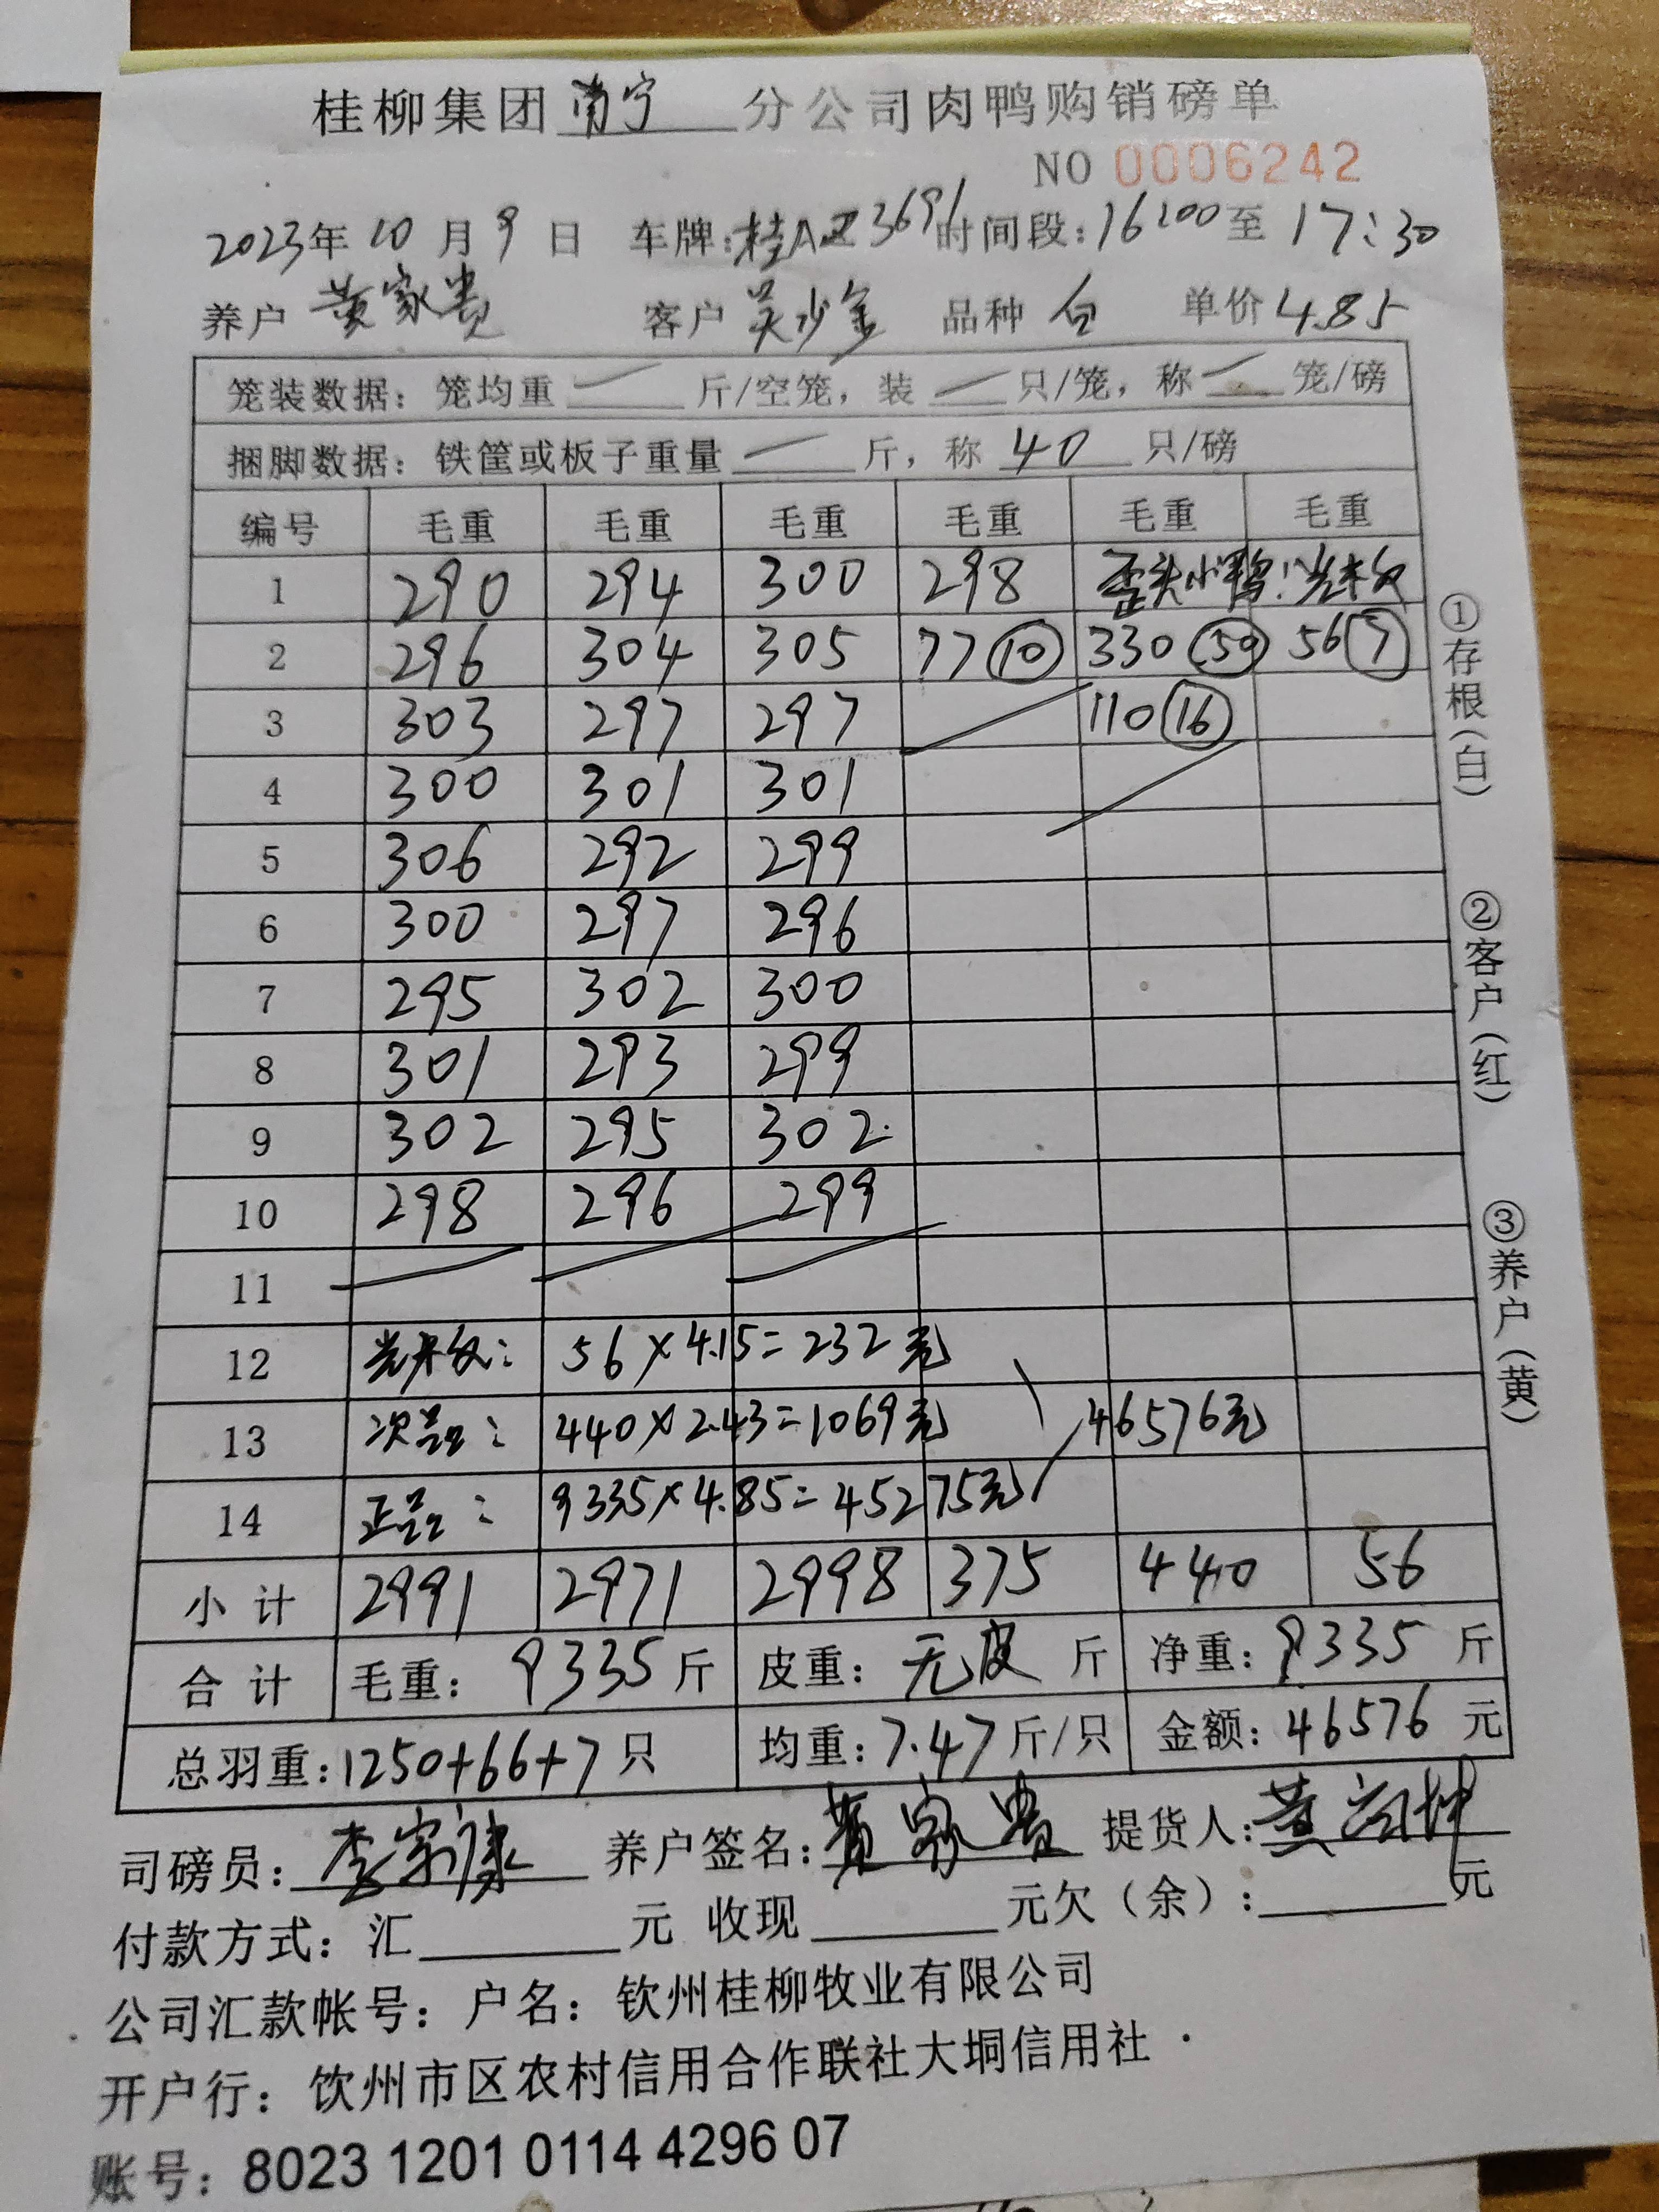 桂柳集团南宁分公司肉鸭购销磅单
NO 0006242
2023年10月9日 车牌:桂A 3696 时间段:16:00至17:30
养户 黄家贵 客户 吴少金 品种 白 单价 4.85
笼装数据: 笼均重 — 斤/空笼, 装 — 只/笼, 称 — 笼/磅
捆脚数据: 铁筐或板子重量 — 斤, 称 40 只/磅
编号 毛重 毛重 毛重 毛重 毛重 毛重
1 290 294 300 298 歪头小鸭:
2 296 304 305 77 (10) 330 (50) 56 (7)
3 303 297 297 110 (16)
4 300 301 301
5 306 292 299
6 300 297 296
7 295 302 300
8 301 293 299
9 302 295 302
10 298 296 299
11
12 56×4.15=232元
13 次品: 440×2.43=1069元 46576元
14 正品: 9335×4.85=45275元
小计 2991 2971 2998 375 440 56
合计 毛重: 9335斤 皮重: 无皮 斤 净重: 9335 斤
总羽重:1250+66+7只 均重:7.47斤/只 金额:46576 元
司磅员: 李宗康 养户签名: 黄家贵 提货人: 黄
付款方式: 汇 元 收现 元欠(余): 元
公司汇款帐号: 户名: 钦州桂柳牧业有限公司
开户行: 饮州市区农村信用合作联社大垌信用社
账号: 8023 1201 0114 4296 07
①存根(白)
②客户(红)
③养户(黄)